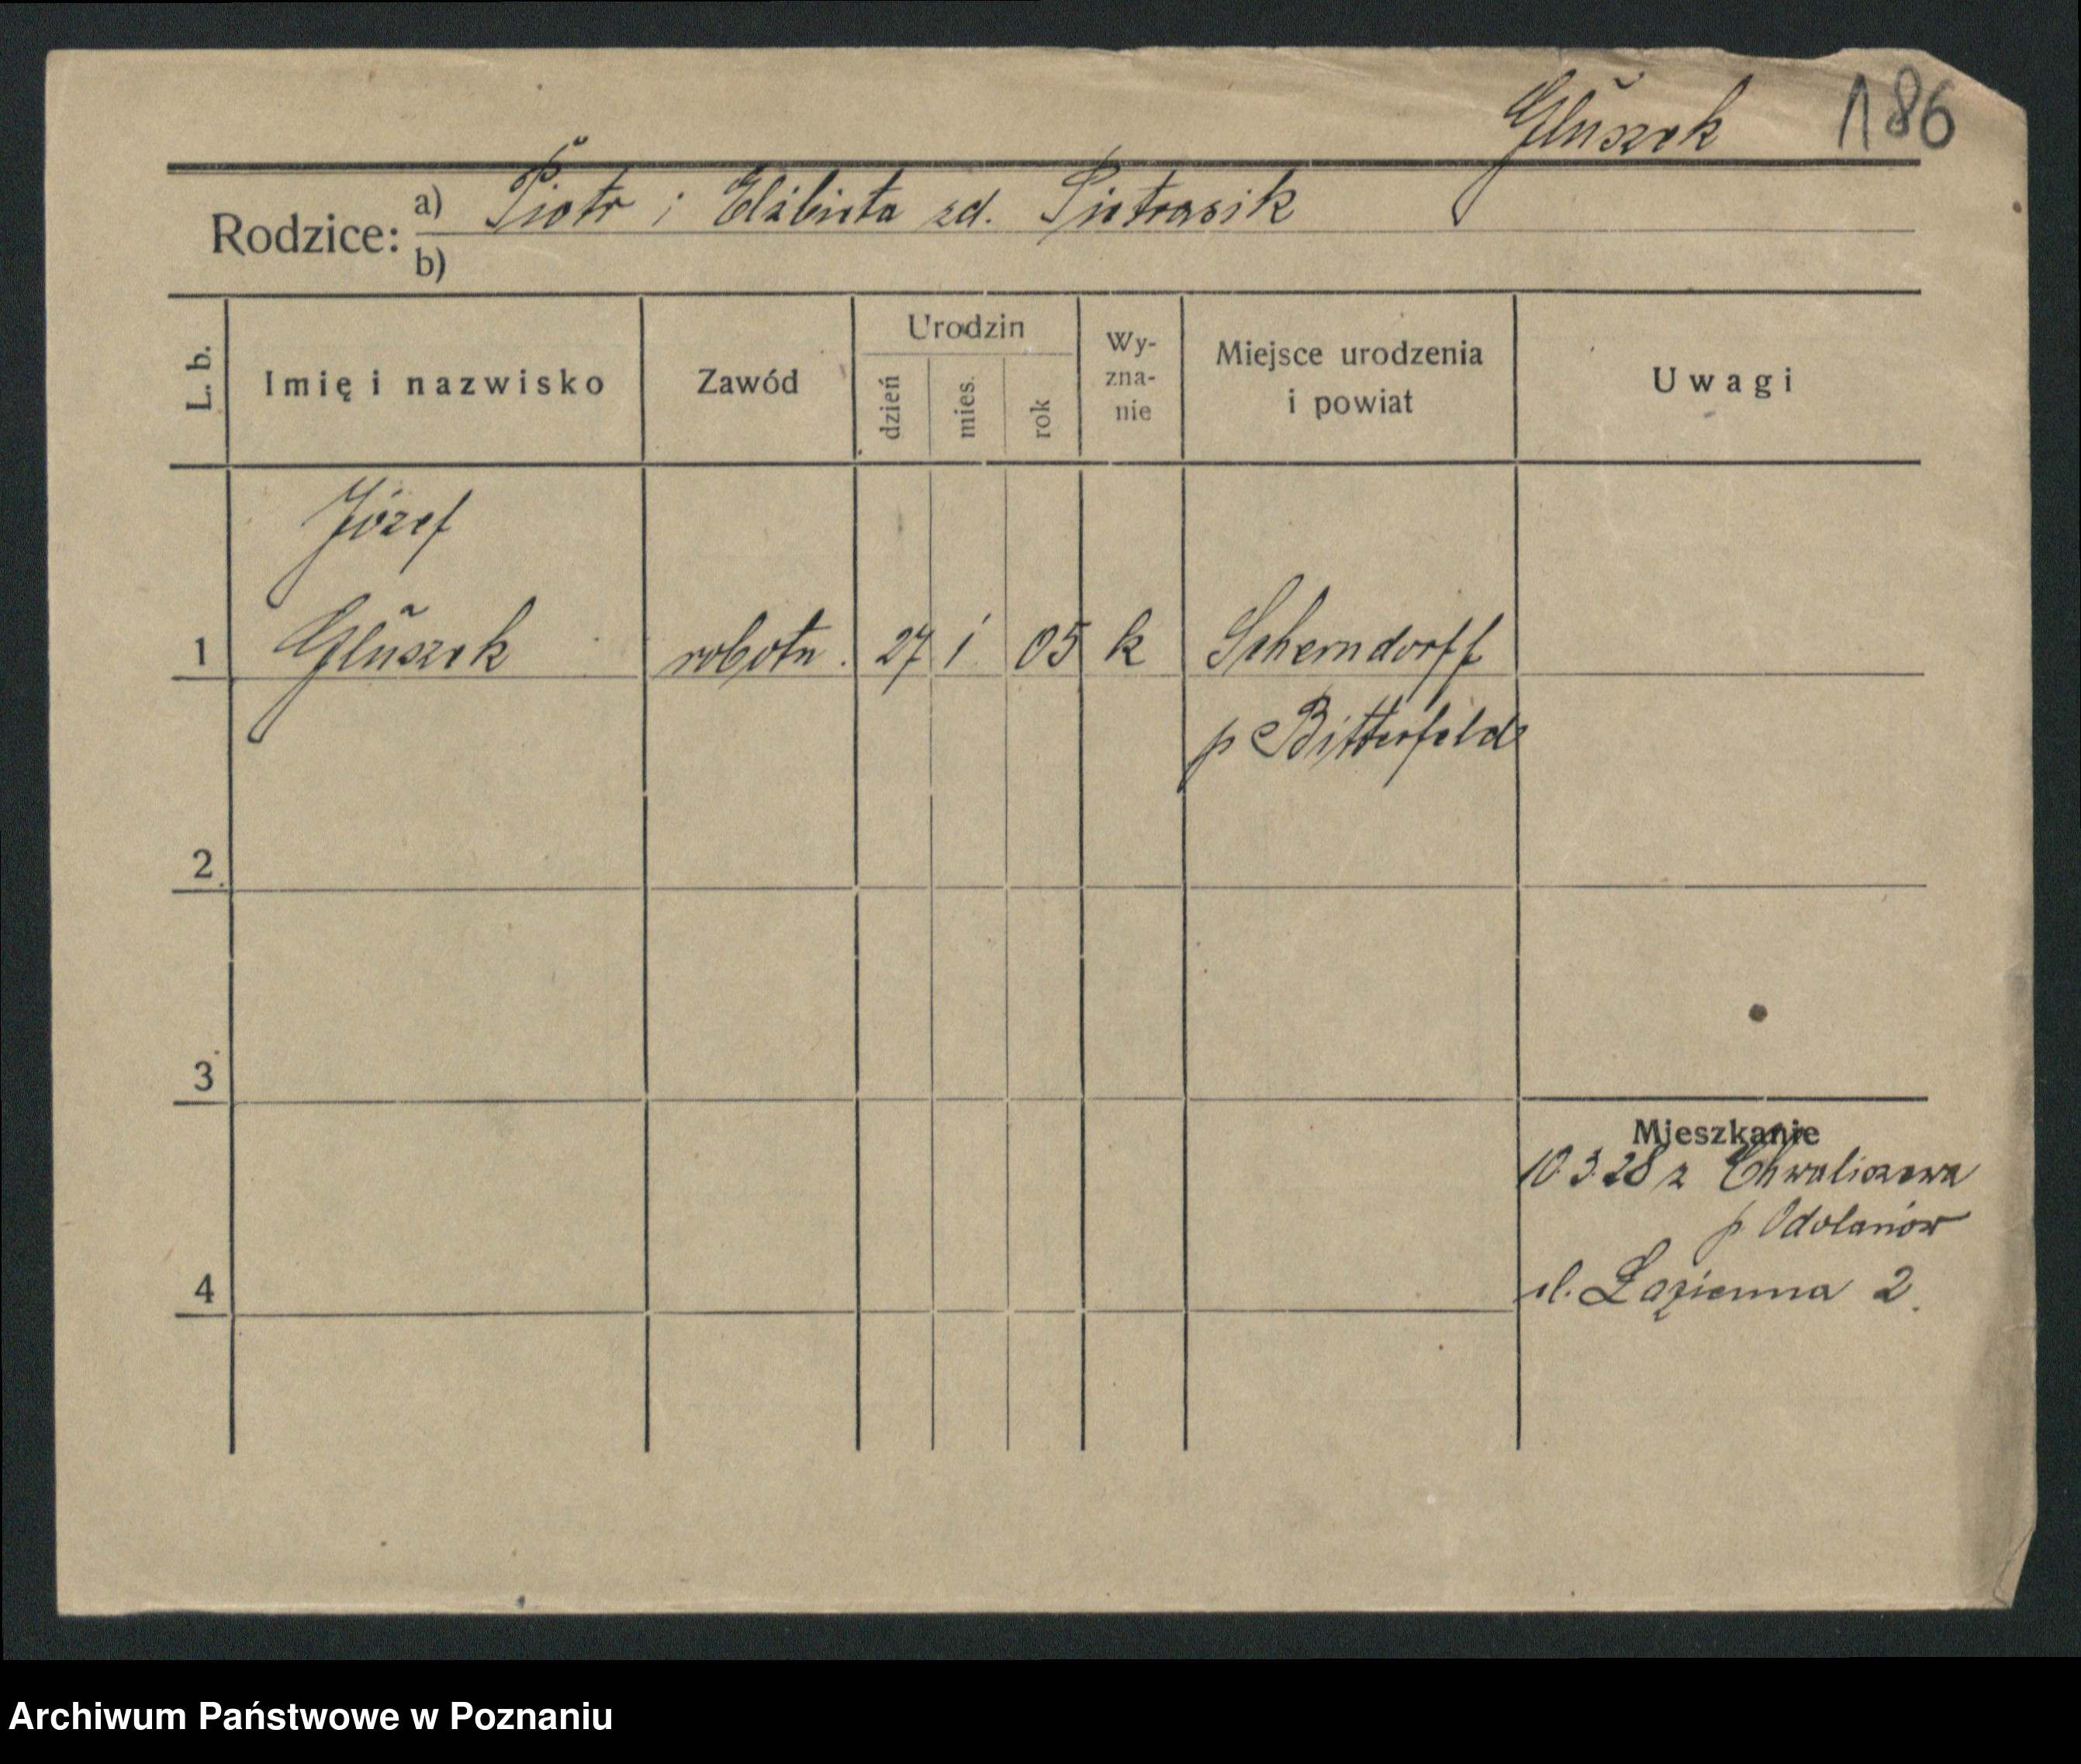 Głuszek 186
Rodzice: a) Piotr i Elżbieta zd. Pietrasik
b)
L. b. Imię i nazwisko Zawód Urodzin dzień mies. rok Wy-zna-nie Miejsce urodzenia i powiat Uwagi
Józef
1 Głuszek robotn. 27 1 05 k
p Bitterfeld
2
3
Mieszkanie
10.3.28 z Chwaliszewa
p Odolanów
4 ul. Łazienna 2.
Archiwum Państwowe w Poznaniu